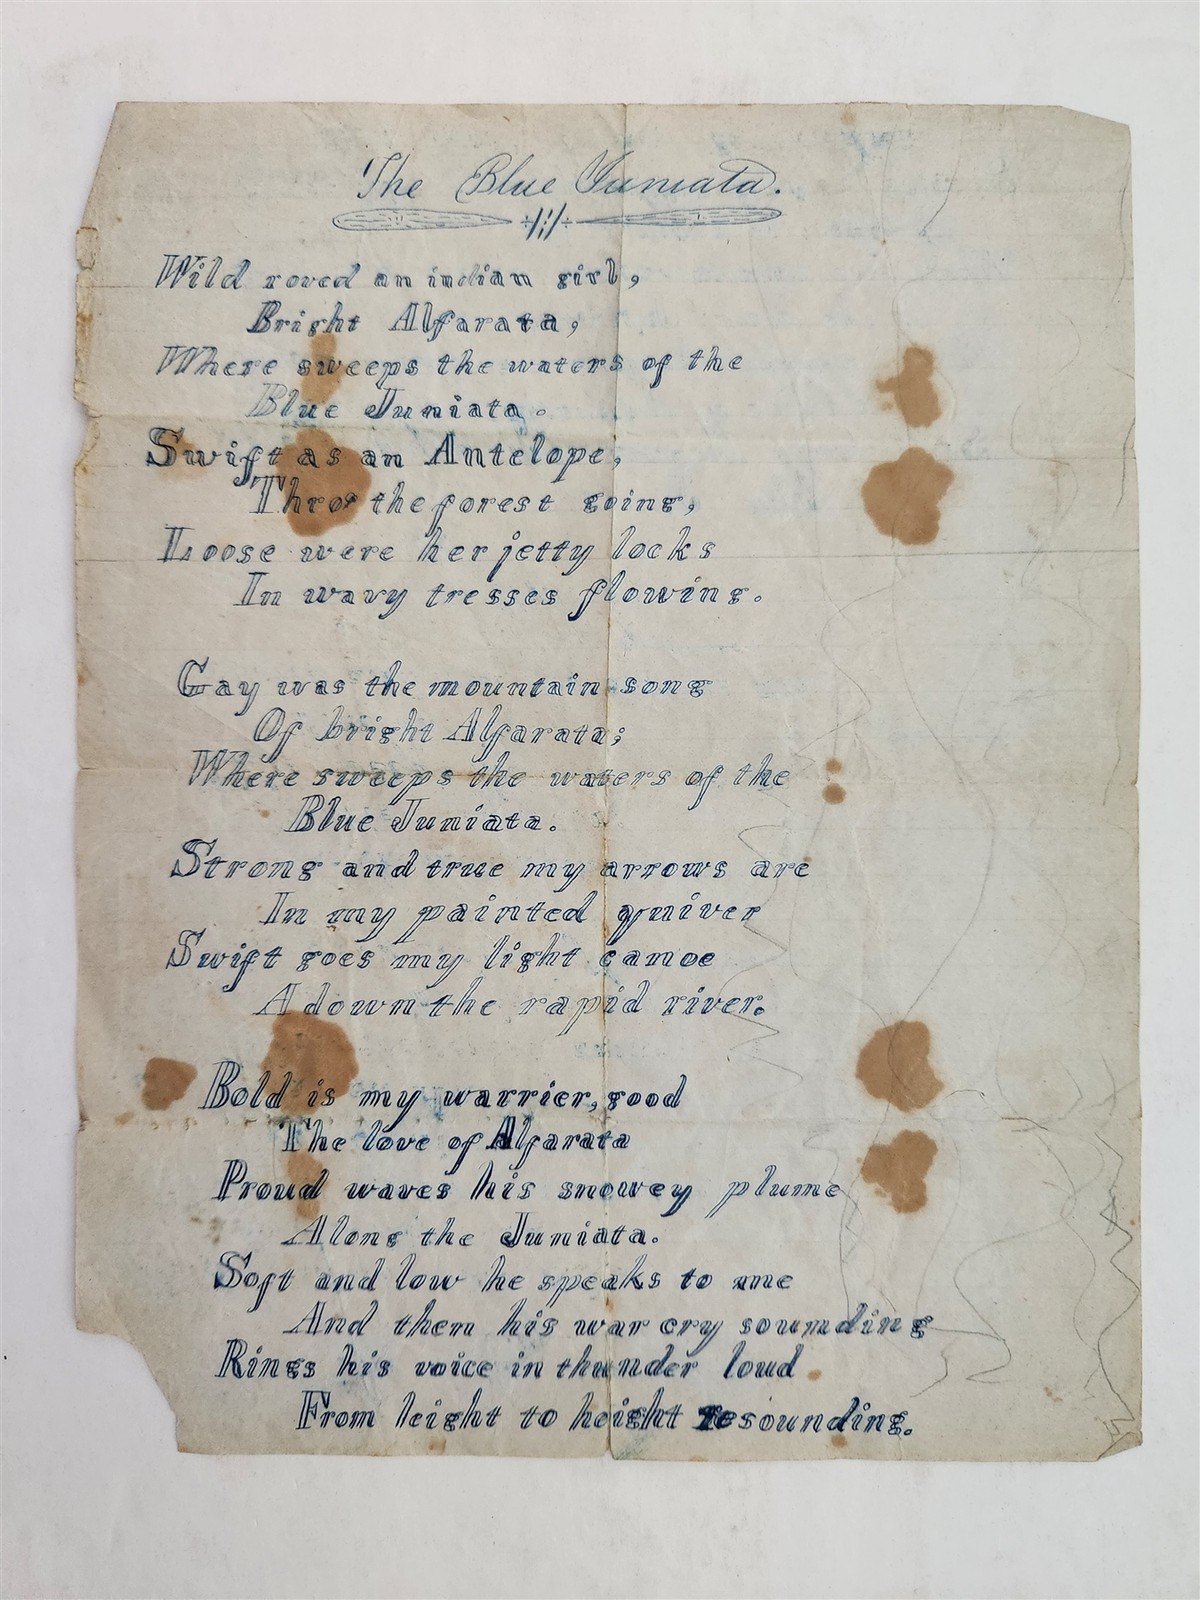 The Blue Juniata.
Wild roved an indian girl,
Bright Alfarata,
Where sweeps the waters of the
Blue Juniata.
Swift as an Antelope,
Thro the forest going,
Loose were her jetty locks
In wavy tresses flowing.
Gay was the mountain song
Of bright Alfarata;
Where sweeps the waters of the
Blue Juniata.
Strong and true my arrows are
In my painted quiver
Swift goes my light canoe
Adown the rapid river.
Bold is my warrier, good
The love of Alfarata
Proud waves his snowey plume
Along the Juniata.
Soft and low he speaks to me
And then his war cry sounding
Rings his voice in thunder loud
From height to height resounding.